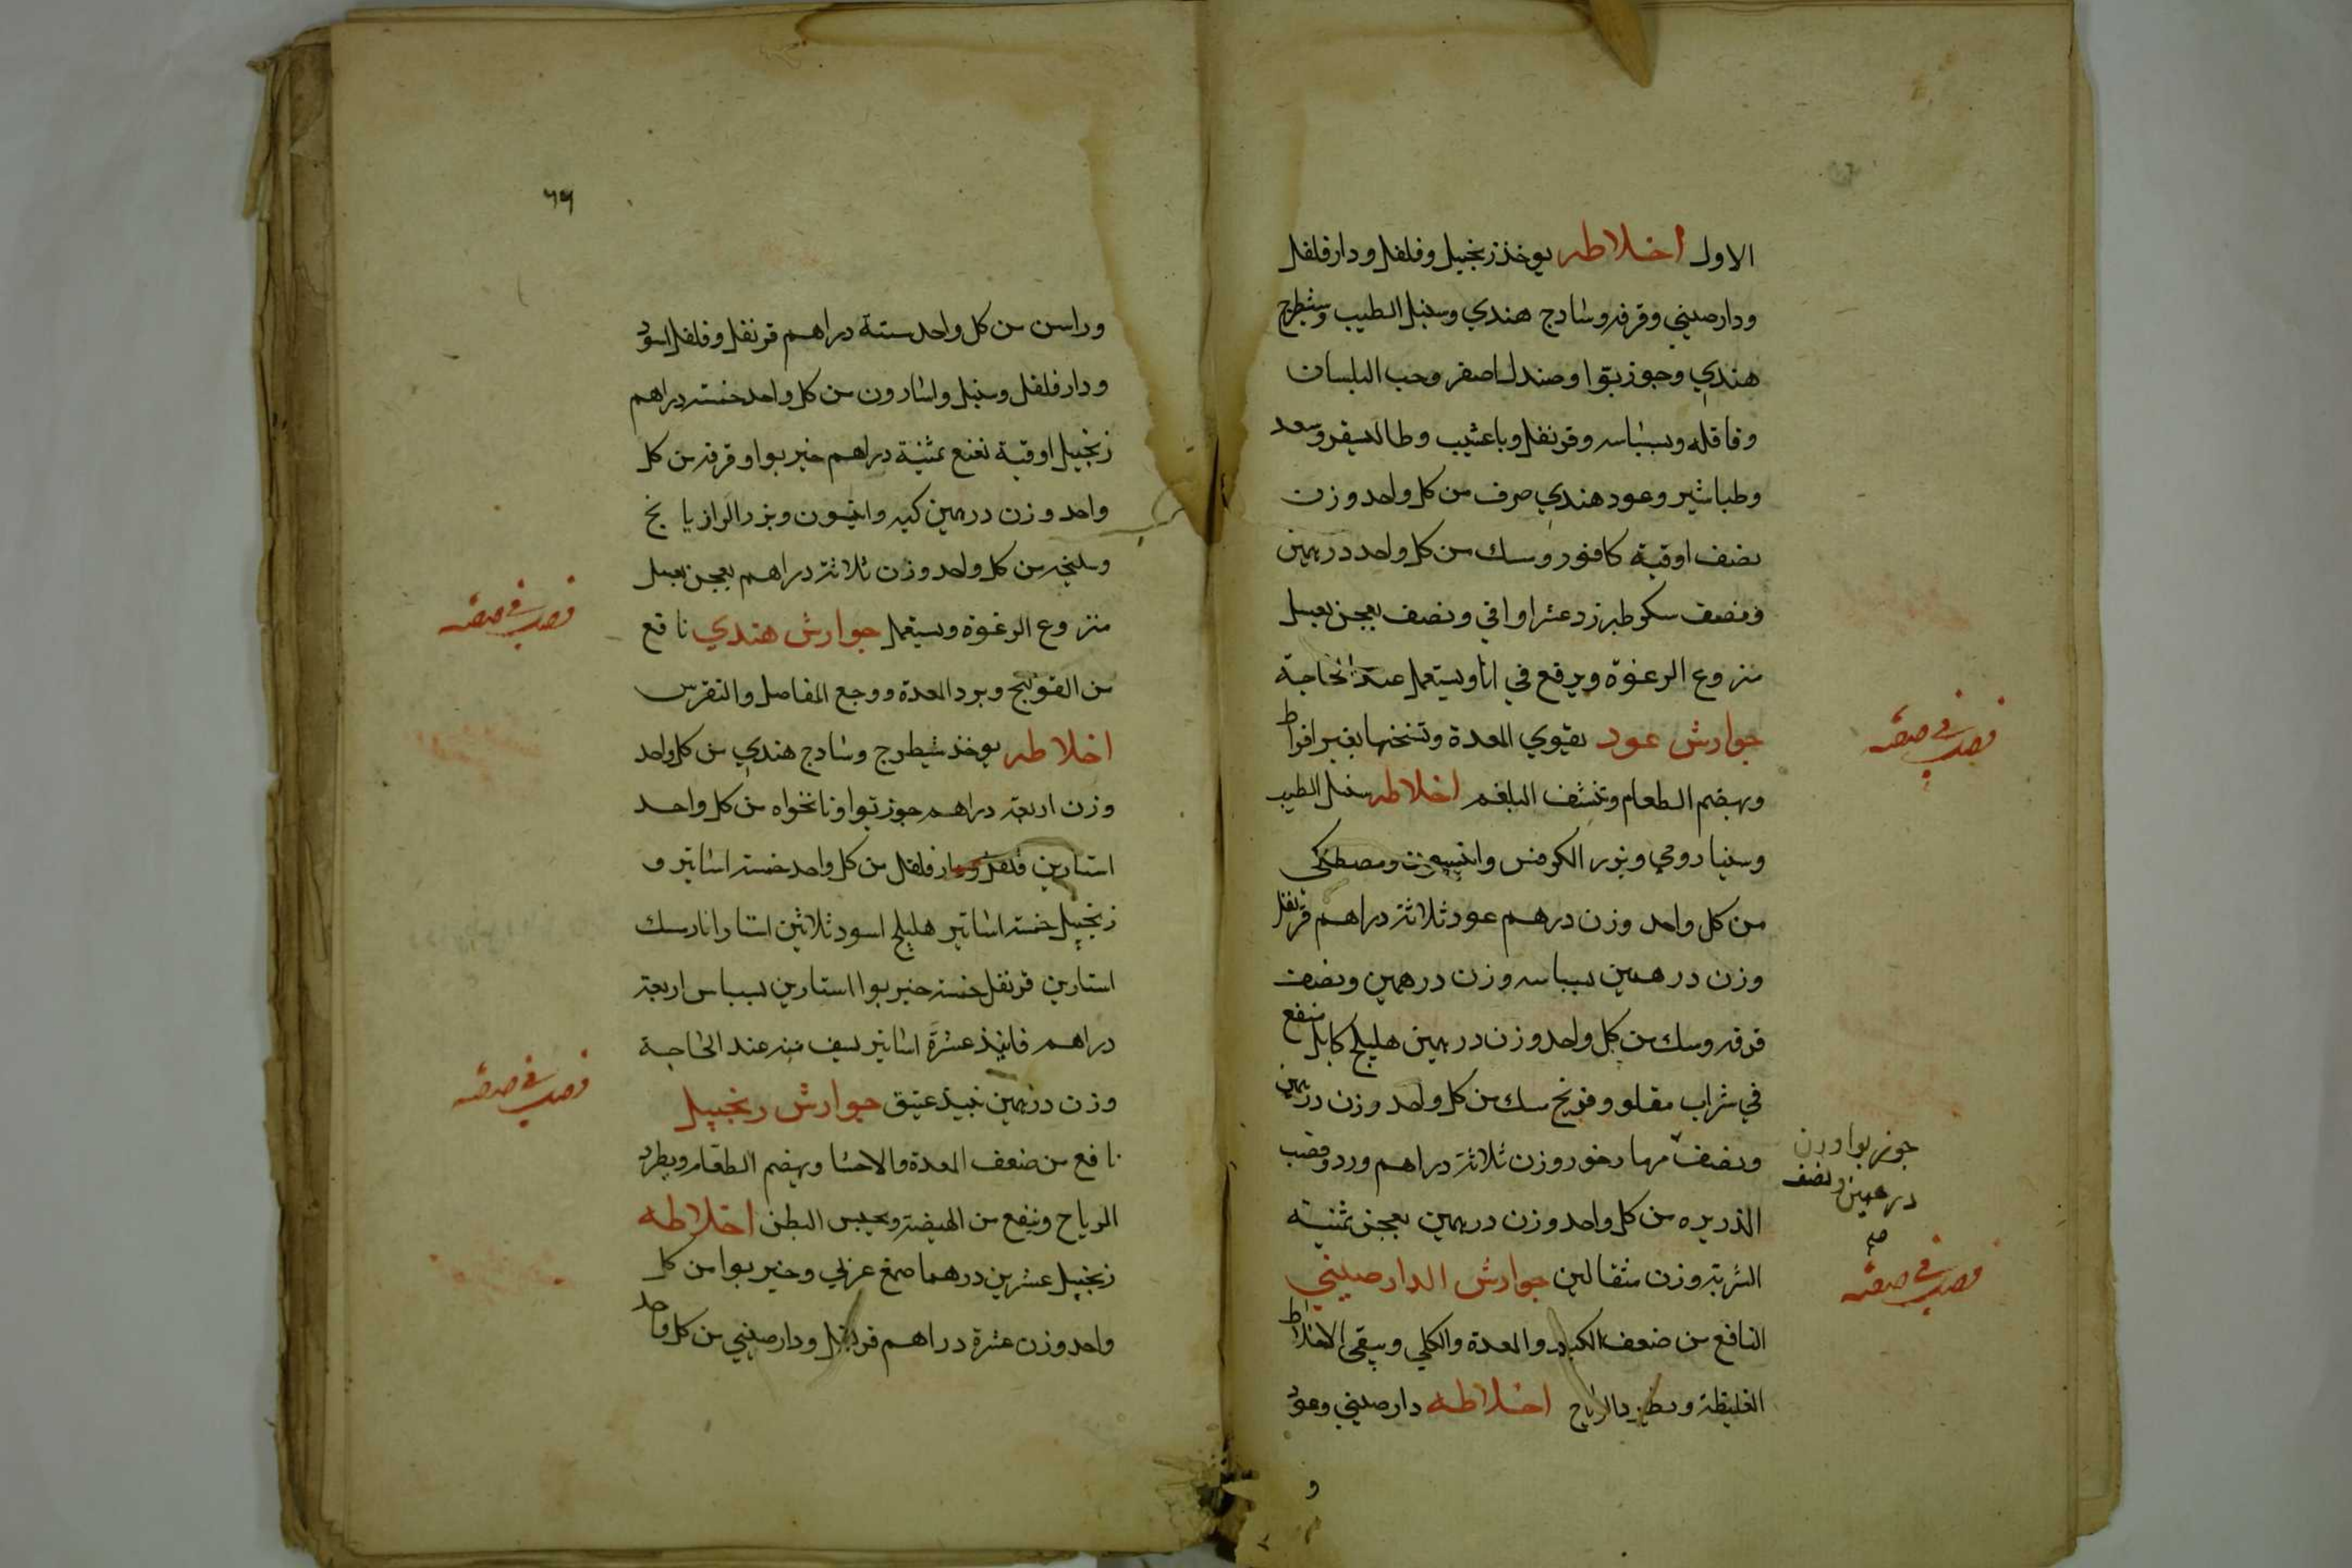 الاول اخلاطه يوخذ زنجبيل وفلفل ودارفلفل
ودارصيني وقرفه وسادج هندي وسنبل الطيب وشيطرج
هندي وجوزبوا وصندل اصفر وحب البلسان
وقاقله وبسباسه وقرنفل وسعد
وطباشير وعود هندي صرف من كل واحد وزن
نصف اوقية كافور وسك من كل واحد درهمين
ونصف سكر طبرزد عشر اواقي ونصف يعجن بعسل
منزوع الرغوة ويرفع في انا ويستعمل عند الحاجة
جوارش عود يقوي المعدة وتسخنها بغير افراط
ويهضم الطعام وتنشف البلغم اخلاطه سنبل الطيب
وسنبا رومي وبزر الكرفس وانيسون ومصطكى
من كل واحد وزن درهم عود ثلاثة دراهم قرنفل
وزن درهمين بسباسه وزن درهمين ونصف
قرفه وسك من كل واحد وزن درهمين هليلج كابلي منقع
في شراب مقلو وفرنج سك من كل واحد وزن درهمين
ونصف وزن ثلاثة دراهم ورد وقصب
جوزبوا وزن
درهمين ونصف
صح
الذريره من كل واحد وزن درهمين يعجن
الشربة وزن مثقالين جوارش الدارصيني
النافع من ضعف الكبد والمعدة والكلي وينقي الاخلاط
الغليظة ويطرد الرياح اخلاطه دارصيني وعود
و
٦٦
وراسن من كل واحد ستة دراهم قرنفل وفلفل اسود
ودارفلفل وسنبل واسارون من كل واحد خمسة دراهم
زنجبيل اوقية نعنع ثمنية دراهم خيربوا وقرفه من كل
واحد وزن درهمين كيه وانيسون وبزر الرازيانج
وسليخه من كل واحد وزن ثلاثة دراهم يعجن بعسل
منزوع الرغوة ويستعمل جوارش هندي نافع
من القولنج وبرد المعدة ووجع المفاصل والنقرس
اخلاطه يوخذ شيطرج وسادج هندي من كل واحد
وزن اربعة دراهم جوزبوا ونانخواه من كل واحد
استارين فلفل ودارفلفل من كل واحد خمسة اساتير و
زنجبيل خمسة اساتير هليلج اسود ثلاثين استارا نارمسك
استارين قرنفل خمسة خيربوا استارين بسباس اربعة
دراهم فانيذ عشرة اساتير يسف منه عند الحاجة
وزن درهمين نبيذ عتيق جوارش زنجبيل
نافع من ضعف المعدة والاحشا ويهضم الطعام ويطرد
الرياح وينفع من الهيضة ويحبس البطن اخلاطه
زنجبيل عشرين درهما صمغ عربي وخيربوا من كل
واحد وزن عشرة دراهم قرنفل ودارصيني من كل واحد